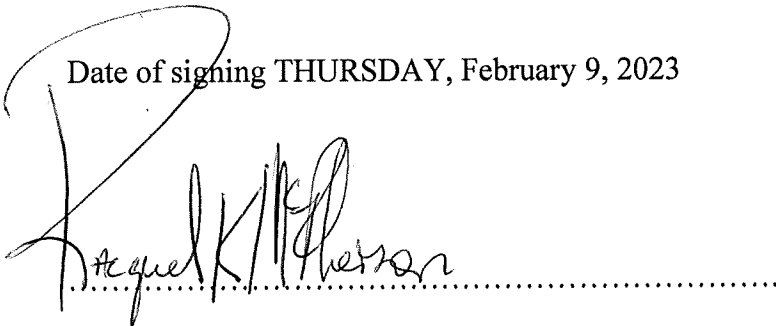 Date of signing THURSDAY, February 9, 2023
Racquel K McPherson